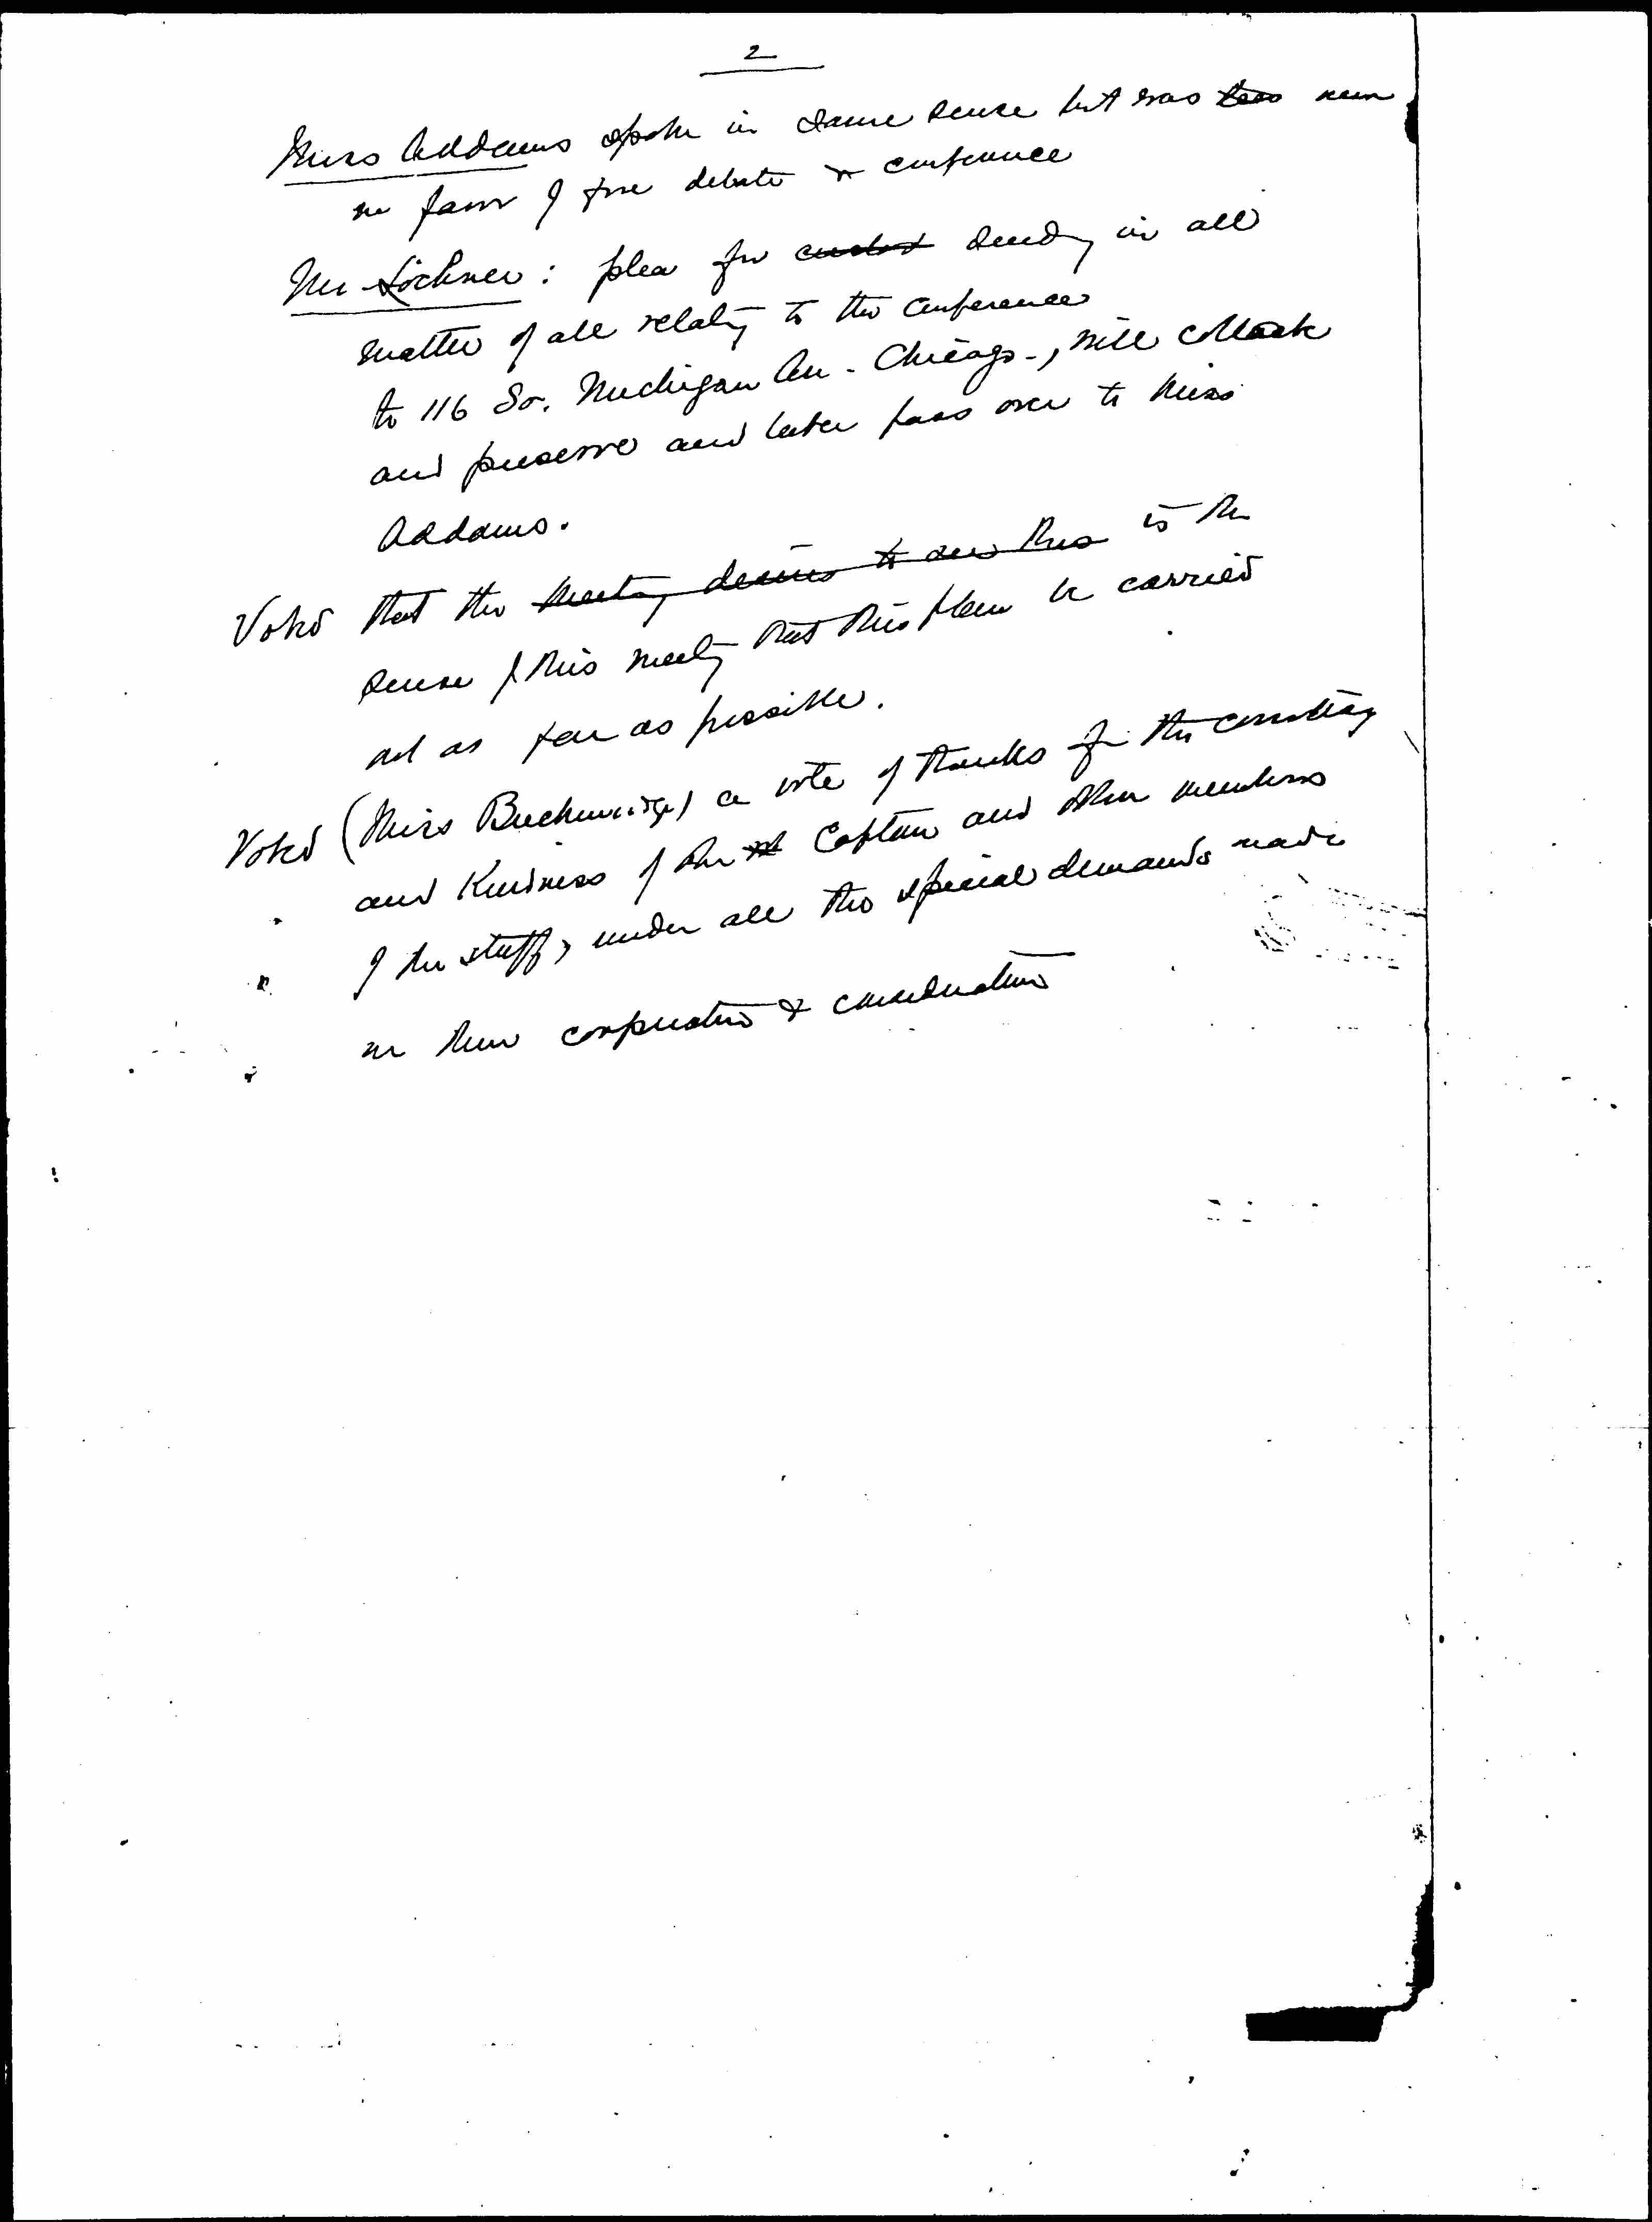 2
Miss Addams spoke in same sense but was less keen
in favor of free debate & conference
Mr Lochner: plea for sending in all
matter of all relating to the conference
to 116 So. Michigan Av. Chicago., will collate
and preserve and later pass over to Miss
Addams.
Voted that the meeting desires to see this is the
sense of this meeting that this plan be carried
out as far as possible.
Voted (Miss Breckinridge) a vote of thanks for the courtesy
and kindness of the Captain and other members
of the staff, under all the special demands made
on their cooperation & consideration